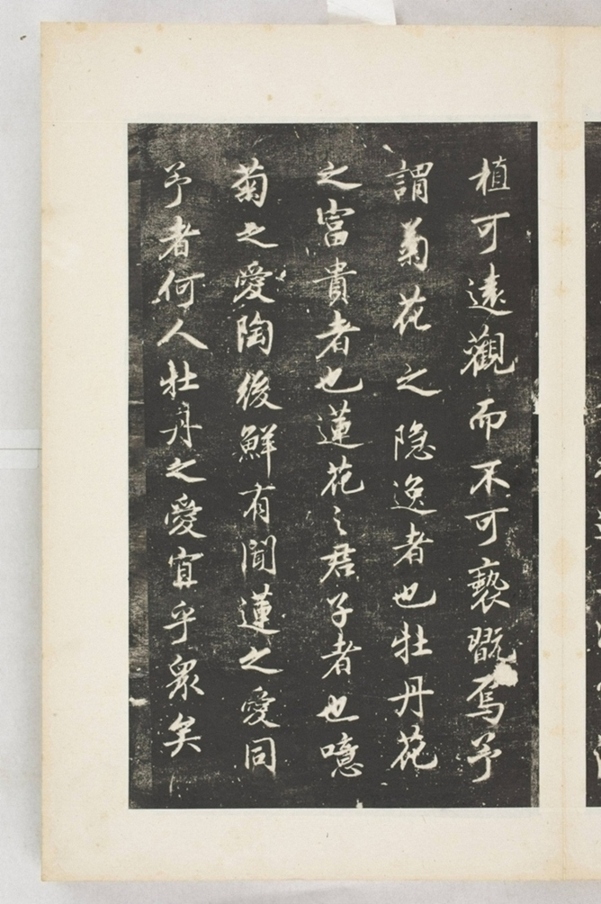 植可遠觀而不可褻翫焉予
謂菊花之隐逸者也牡丹花
之富貴者也蓮花之君子者也噫
菊之愛陶後鮮有聞蓮之愛同
予者何人牡丹之愛宜乎衆矣